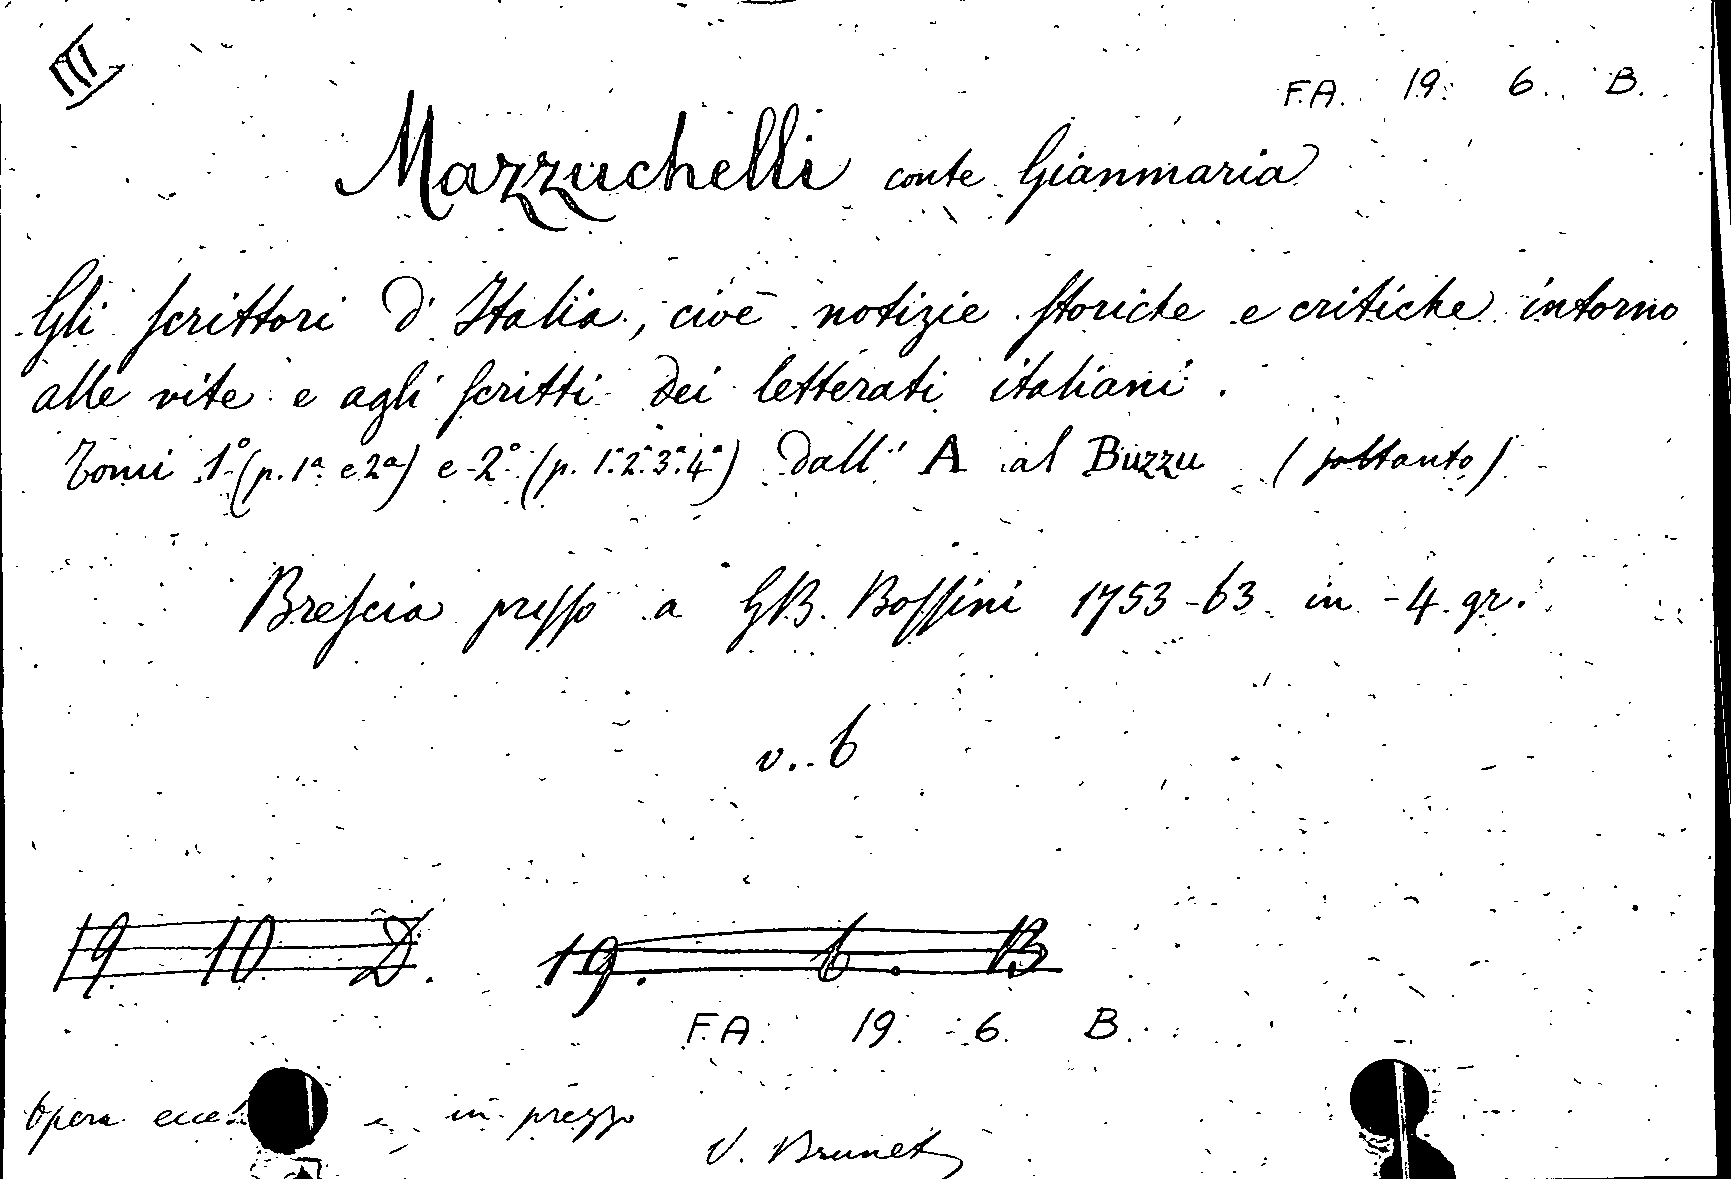 III
F.A. 19. 6. B.
Mazzuchelli conte Gianmaria
Gli scrittori d'Italia, cioè notizie storiche e critiche intorno
alle vite e agli scritti dei letterati italiani.
Tomi 1.° (p. 1ª e 2ª) e 2.° (p. 1ª 2ª 3ª 4ª) dall' A al Buzzu (soltanto)
Brescia presso a GB. Bossini 1753-63 in-4. gr.
v. 6
19 10 D. 19. 6. B
F.A. 19. 6. B.
Opera in prezzo
V. Brunet